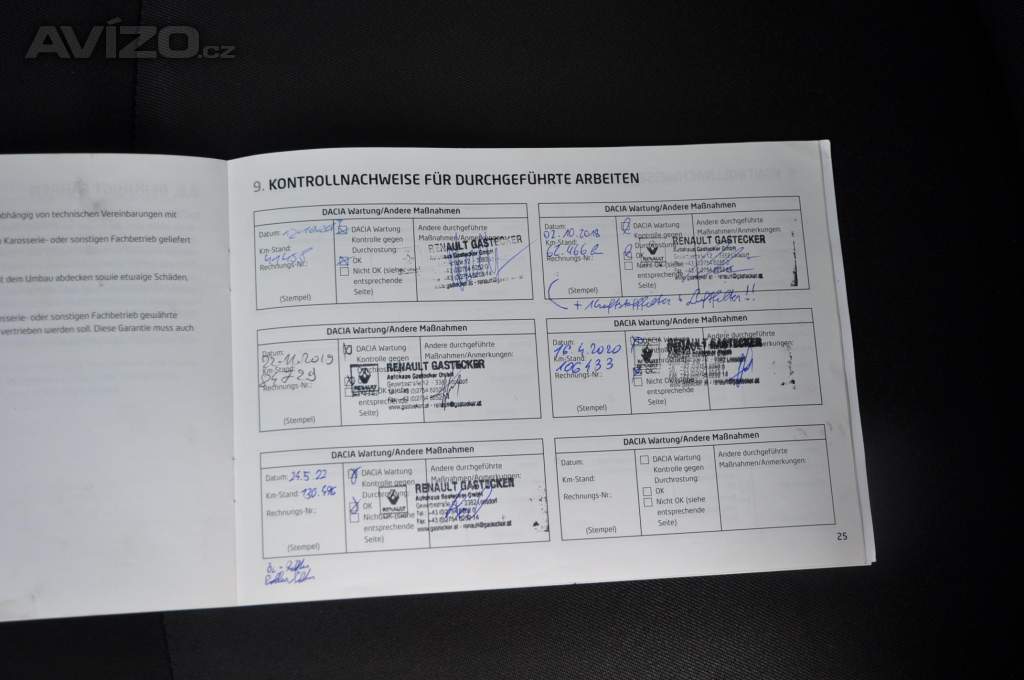 AVÍZO.cz
abhängig von technischen Vereinbarungen mit
Karosserie- oder sonstigen Fachbetrieb geliefert
dem Umbau abdecken sowie etwaige Schäden,
sserie- oder sonstigen Fachbetrieb gewährte
vertrieben werden soll. Diese Garantie muss auch
9. KONTROLLNACHWEISE FÜR DURCHGEFÜHRTE ARBEITEN
DACIA Wartung/Andere Maßnahmen
Datum:
Km-Stand:
41455
Rechnungs-Nr.:
(Stempel)
DACIA Wartung
Kontrolle gegen
Durchrostung:
OK
Nicht OK (siehe
entsprechende
Seite)
Andere durchgeführte
Maßnahmen/Anmerkungen:
RENAULT GASTECKER
DACIA Wartung/Andere Maßnahmen
Datum:
02.10.2018
Km-Stand:
62.466
Rechnungs-Nr.:
(Stempel)
DACIA Wartung
Kontrolle gegen
Durchrostung:
OK
Nicht OK (siehe
entsprechende
Seite)
Andere durchgeführte
Maßnahmen/Anmerkungen:
RENAULT GASTECKER
Autohaus Gastecker GmbH
DACIA Wartung/Andere Maßnahmen
Datum:
11.2019
Km-Stand:
Rechnungs-Nr.:
(Stempel)
DACIA Wartung
Kontrolle gegen
OK
entsprechende
Seite)
Andere durchgeführte
Maßnahmen/Anmerkungen:
RENAULT GASTECKER
Autohaus Gastecker GmbH
RENAULT
DACIA Wartung/Andere Maßnahmen
Datum:
16.4.2020
Km-Stand:
106433
Rechnungs-Nr.:
(Stempel)
DACIA Wartung
Kontrolle gegen
OK
Nicht OK (siehe
entsprechende
Seite)
Andere durchgeführte
Maßnahmen/Anmerkungen:
RENAULT GASTECKER
DACIA Wartung/Andere Maßnahmen
Datum: 24.5.22
Km-Stand: 130.496
Rechnungs-Nr.:
(Stempel)
DACIA Wartung
Kontrolle gegen
Durchrostung:
OK
Nicht OK (siehe
entsprechende
Seite)
Andere durchgeführte
Maßnahmen/Anmerkungen:
RENAULT GASTECKER
Autohaus Gastecker GmbH
RENAULT
DACIA Wartung/Andere Maßnahmen
Datum:
Km-Stand:
Rechnungs-Nr.:
(Stempel)
DACIA Wartung
Kontrolle gegen
Durchrostung:
OK
Nicht OK (siehe
entsprechende
Seite)
Andere durchgeführte
Maßnahmen/Anmerkungen:
25